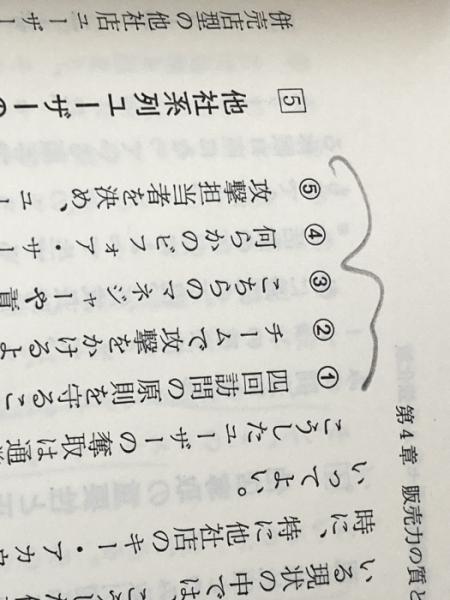 第4章 販売力の質と
いる現状の中では、
時に、特に他社店のキー・アカウ
いってよい。
こうしたユーザーの奪取は通常
① 四回訪問の原則を守るこ
② チームで攻撃をかけるよ
③ こちらのマネジャーや責
④ 何らかのビフォアサー
⑤ 攻撃担当者を決め、ユー
5 他社系列ユーザーの
併売店型の他社店ユーザー